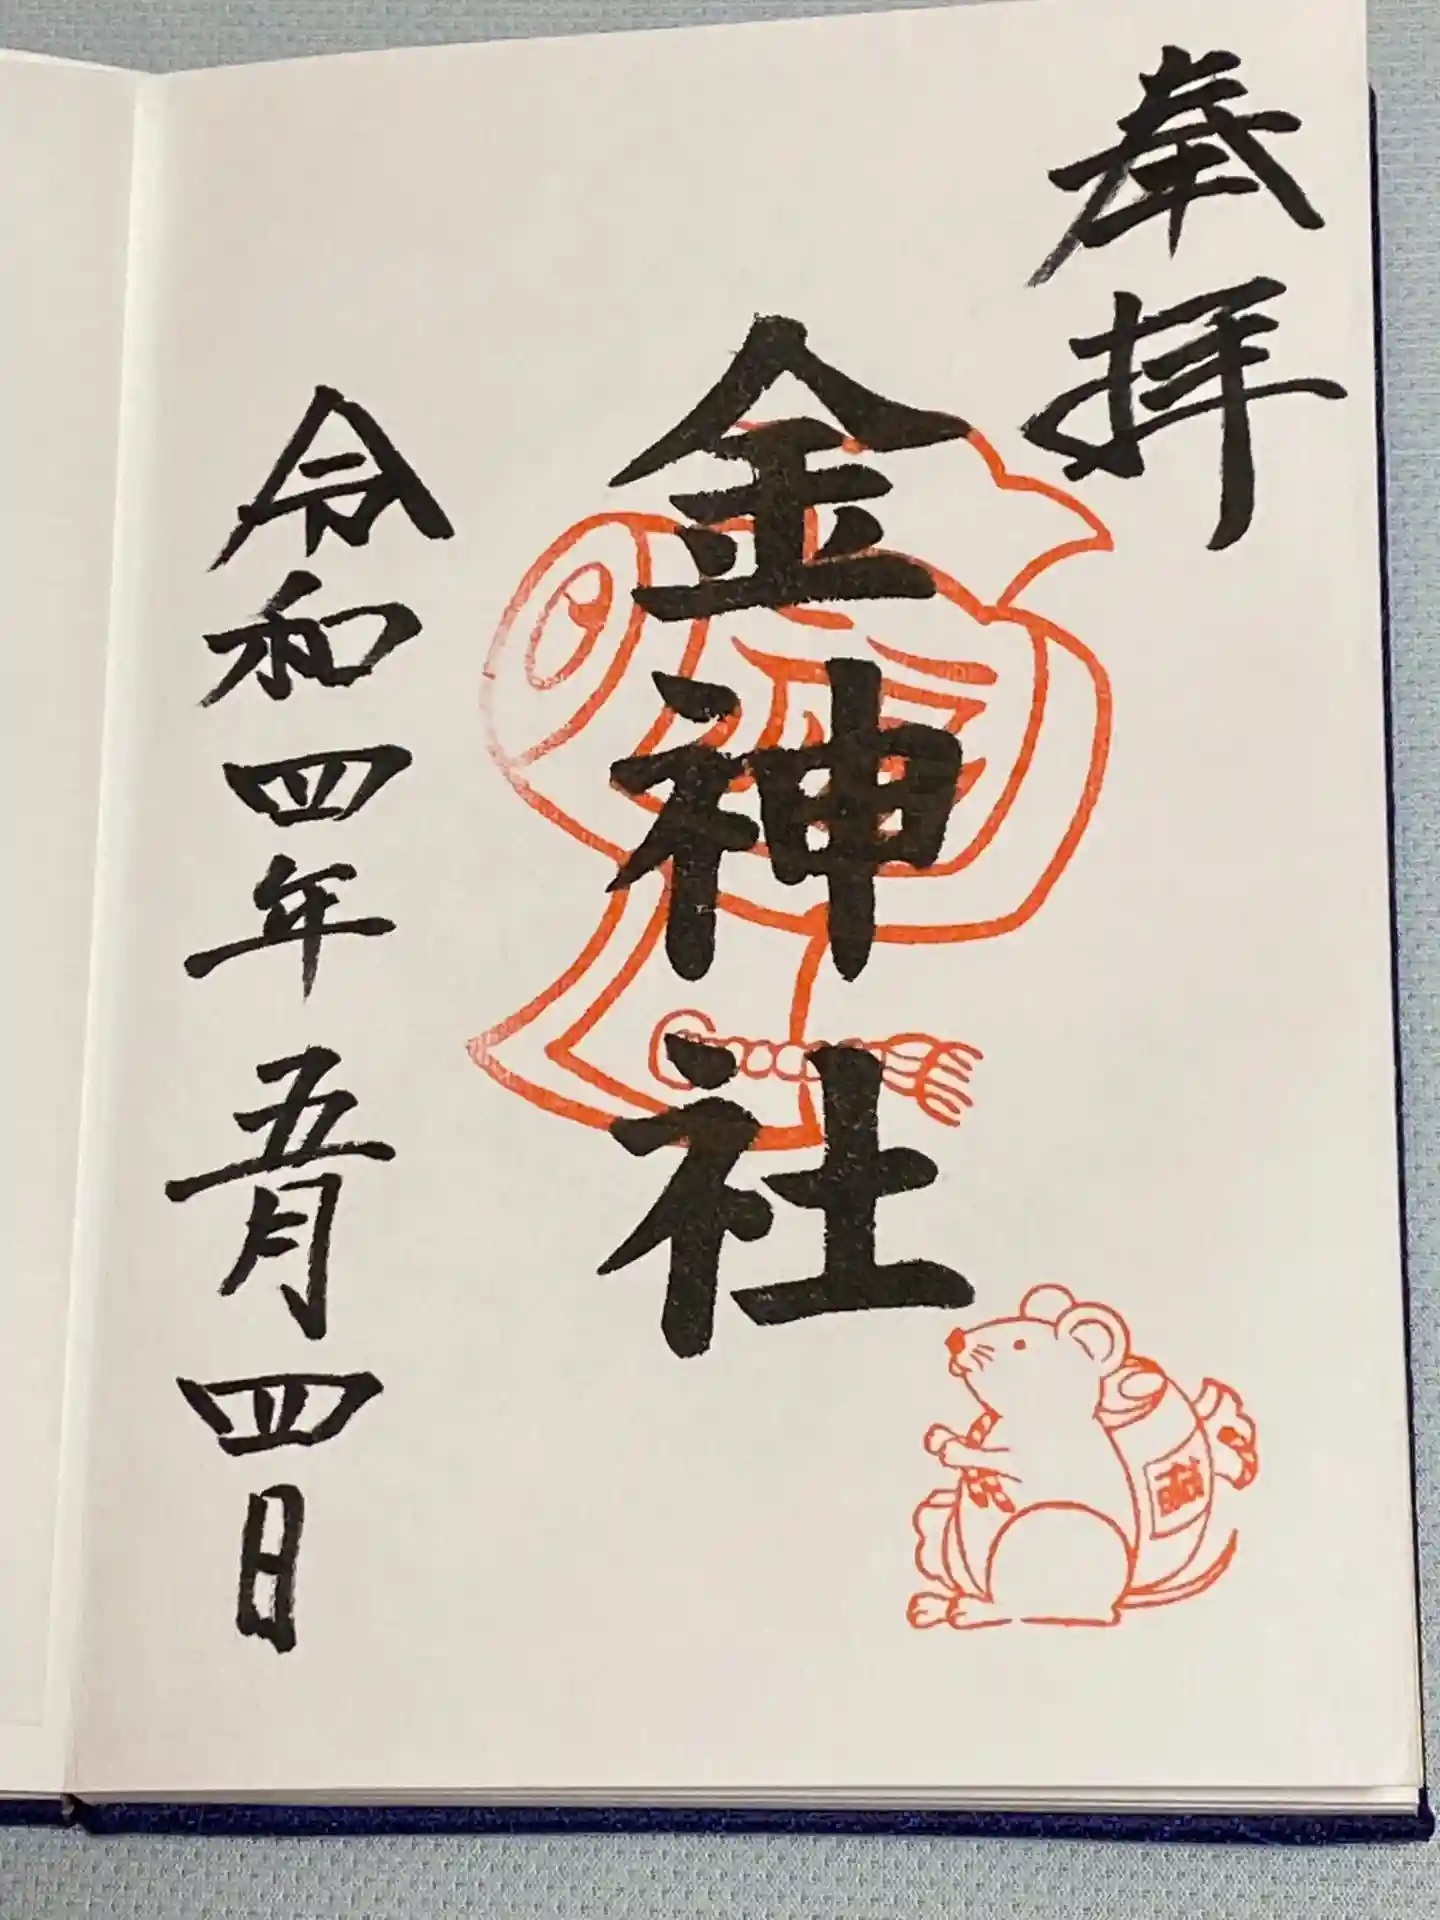 奉拝
金神社
令和四年五月四日
福